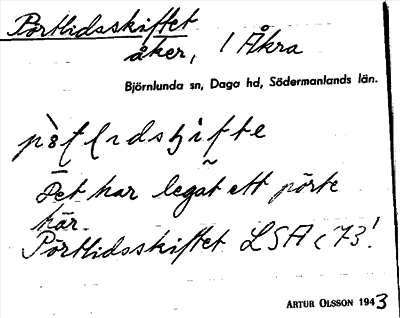 Pörtlidsskiftet
åker, i Åkra
Björnlunda sn, Daga hd, Södermanlands län.
Det har legat ett pörte
här.
Pörtlidsskiftet LSA c 73!
ARTUR OLSSON 1943